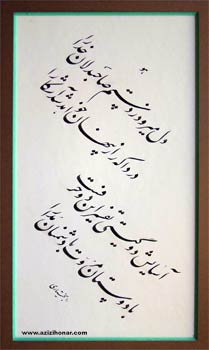 هو
دل می‌رود ز دستم صاحبدلان خدا را
دردا که راز پنهان خواهد شد آشکارا
آسایش دو گیتی تفسیر این دو حرفست
با دوستان مروت با دشمنان مدارا
www.azizihonar.com